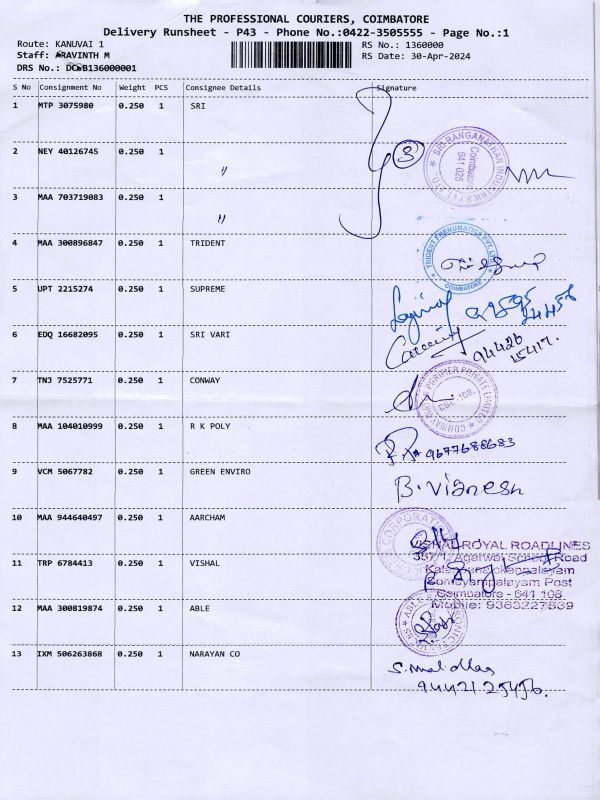 THE PROFESSIONAL COURIERS, COIMBATORE
Delivery Runsheet - P43 - Phone No.:0422-3505555 - Page No.:1
Route: KANUVAI 1
RS No.: 1360000
Staff: ARAVINTH M
RS Date: 30-Apr-2024
DRS No.: DCOB136000001
S No Consignment No Weight PCS Consignee Details Signature
1 MTP 3075980 0.250 1 SRI
3
SRI RANGANATHAR INDUSTRIES PVT. LTD. Coimbatore 641 025
2 NEY 40126745 0.250 1 "
3 MAA 703719083 0.250 1 "
4 MAA 300896847 0.250 1 TRIDENT
TRIDENT PNEUMATICS PVT. LTD. COIMBATORE
5 UPT 2215274 0.250 1 SUPREME
6 EDQ 16682095 0.250 1 SRI VARI
94426
15417.
7 TNJ 7525771 0.250 1 CONWAY
8 MAA 104010999 0.250 1 R K POLY
9677688683
9 VCM 5067782 0.250 1 GREEN ENVIRO
B. Vignesh
10 MAA 944640497 0.250 1 AARCHAM
CORPORATION
11 TRP 6784413 0.250 1 VISHAL
VISHAL ROYAL ROADLINES
357/1, Agarwal School Road
Kalappanaickenpalayam
Somayampalayam Post
Coimbatore - 641 108
Mobile: 9363227539
12 MAA 300819874 0.250 1 ABLE
ABLE
13 IXM 506263868 0.250 1 NARAYAN CO
94421 25456.